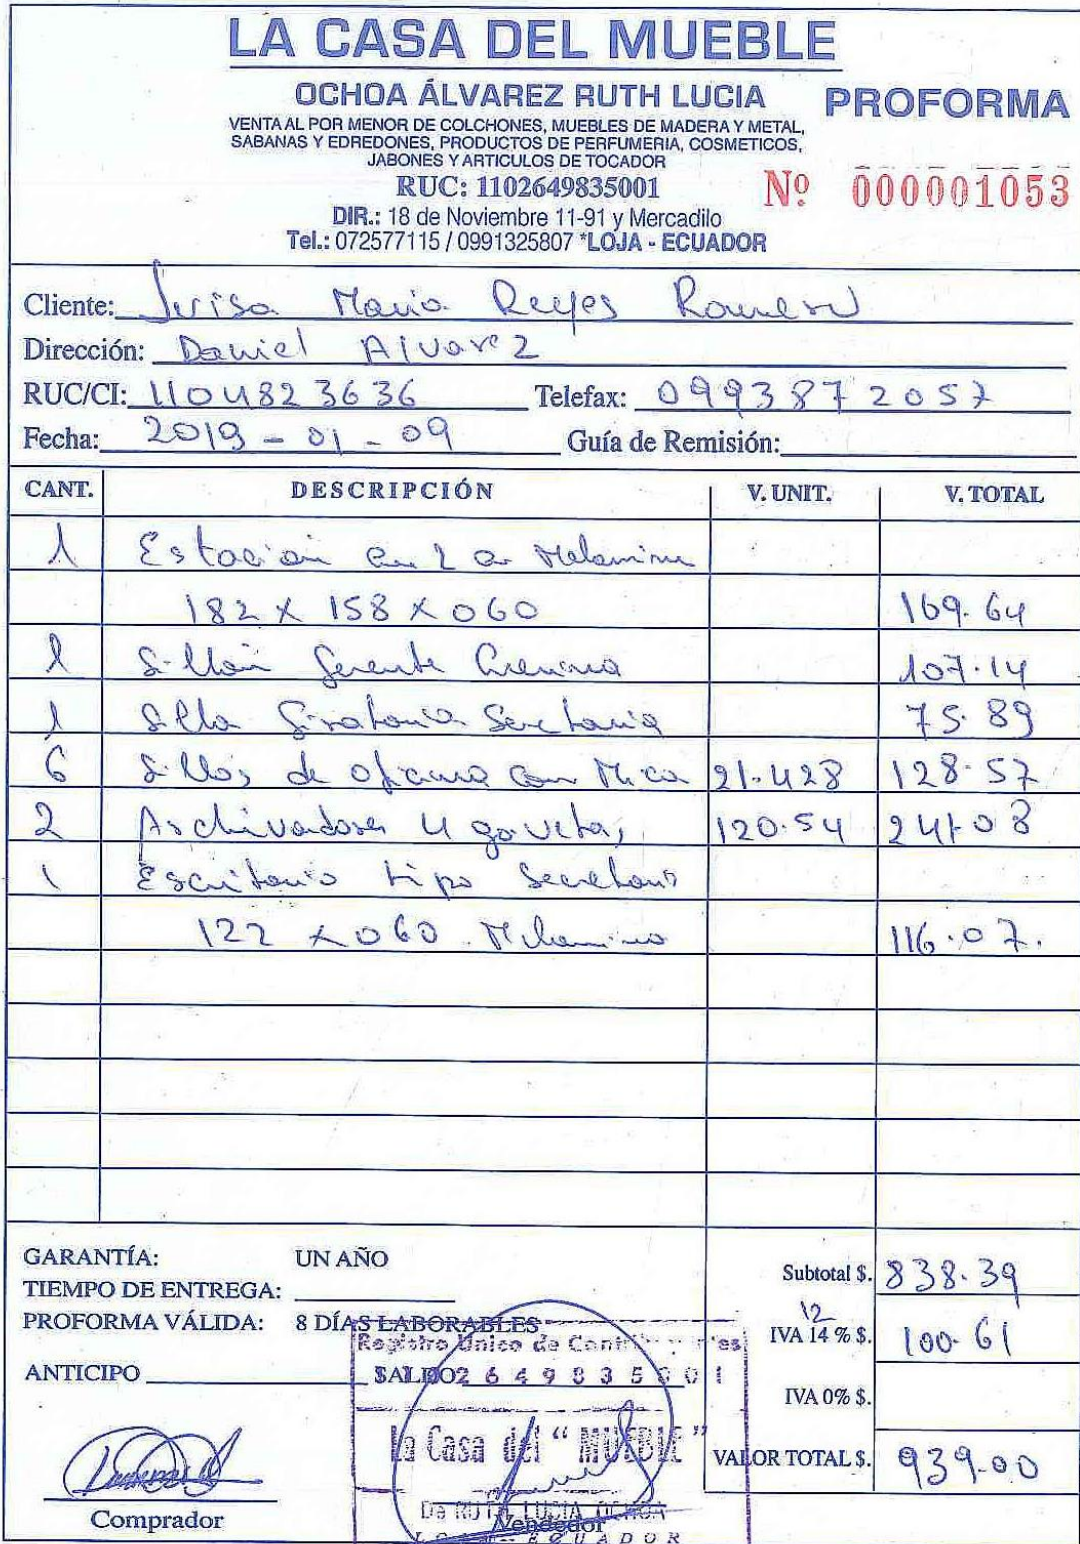 LA CASA DEL MUEBLE
OCHOA ÁLVAREZ RUTH LUCIA
PROFORMA
VENTA AL POR MENOR DE COLCHONES, MUEBLES DE MADERA Y METAL,
SABANAS Y EDREDONES, PRODUCTOS DE PERFUMERIA, COSMETICOS,
JABONES Y ARTICULOS DE TOCADOR
RUC: 1102649835001
Nº 000001053
DIR.: 18 de Noviembre 11-91 y Mercadilo
Tel.: 072577115 / 0991325807 *LOJA - ECUADOR
Cliente: Luisa Maria Reyes Romero
Dirección: Daniel Alvarez
RUC/CI: 1104823636 Telefax: 0993872057
Fecha: 2019-01-09 Guía de Remisión:
CANT. DESCRIPCIÓN V. UNIT. V. TOTAL
1 Estación en L a Melamina
182 x 158 x 060 169.64
1 Sillón Gerente 107.14
1 Silla Giratoria Secretaria 75.89
6 Sillas de oficina con Mica 21.428 128.57
2 Archivadores 4 gavetas 120.54 241.08
1 Escritorio tipo Secretario
122 x 060 Melamina 116.07.
GARANTÍA: UN AÑO
TIEMPO DE ENTREGA:
PROFORMA VÁLIDA: 8 DÍAS LABORABLES
ANTICIPO SALDO
Subtotal $. 838.39
12
IVA 14 % $. 100.61
IVA 0% $.
VALOR TOTAL $. 939.00
Registro Unico de
La Casa del "MUEBLE"
De RUTH LUCIA OCHOA
LOJA - ECUADOR
Comprador
Vendedor